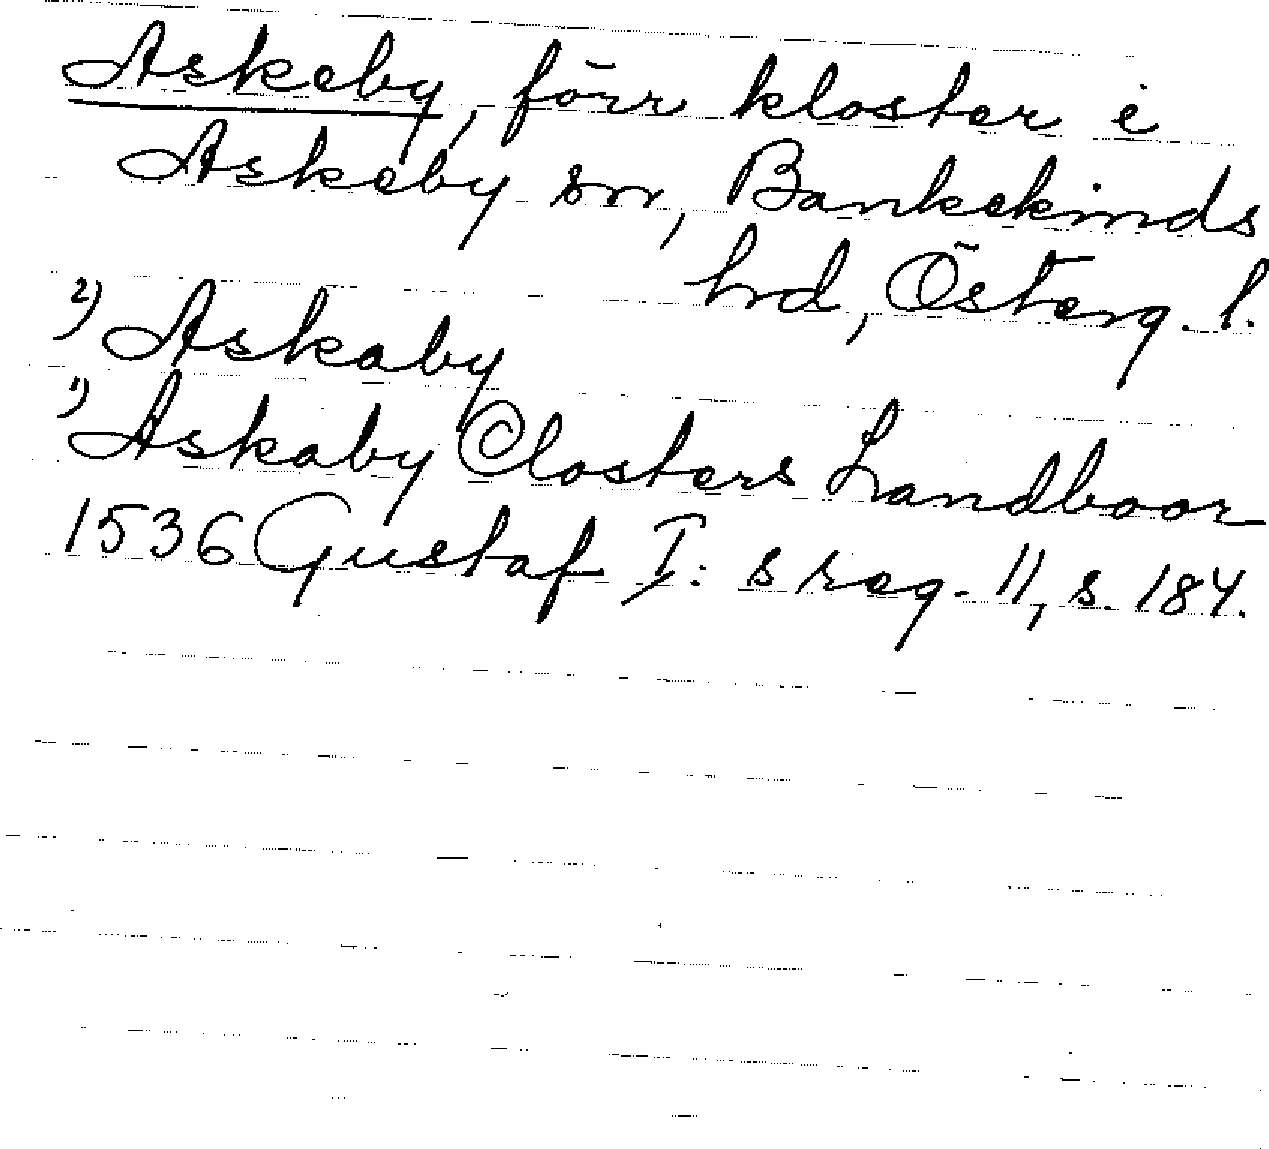 Askeby, förr kloster i
Askeby sn, Bankekinds
hd, Österg. l.
2) Askaby
1) Askaby Closters Landboor
1536 Gustaf I: s reg. 11, s. 184.